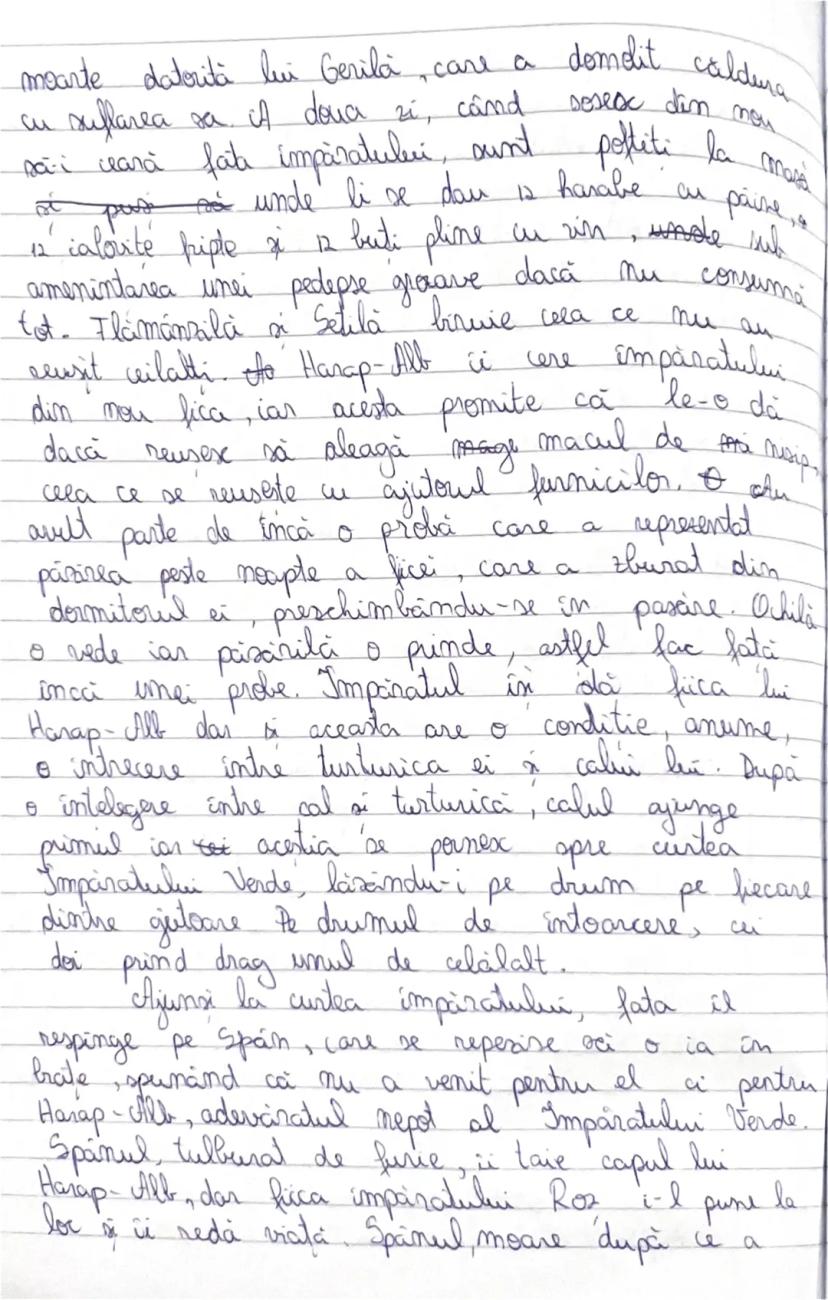 moarte datorită lui Gerilă, care a domolit căldura
cu suflarea sa. A doua zi, când sosesc din nou
să-i ceară fata împăratului, sunt poftiti la masă
si pusi să unde li se dau 12 harabe cu pâine,
12 ialovite fripte și 12 buti pline cu vin, unde sub
amenintarea unei pedepse grave dacă nu consumă
tot. Flămânzilă si Setilă binuie ceea ce nu au
reusit ceilalti. Harap-Alb îi cere împăratului
din nou fica, iar acesta promite că le-o dă
dacă reusesc să aleagă macul de nisip,
ceea ce se reuseste cu ajutorul furnicilor. O Au
avut parte de încă o probă care a reprezentat
păzirea peste noapte a ficei, care a zburat din
dormitorul ei, preschimbându-se în pasăre. Ochilă
o vede iar păsărilă o prinde, astfel fac fată
încă unei probe. Împăratul îsi dă fiica lui
Harap-Alb dar si aceasta are o conditie, anume,
o întrecere între turturica ei și calui lui. După
o intelegere între cal si turturică, calul ajunge
primul iar acestia se pornesc spre curtea
Împăratului Verde, lăsându-i pe drum pe fiecare
dintre ajutoare Pe drumul de întoarcere, cei
doi prind drag unul de celălalt.
Ajunsi la curtea împăratului, fata îl
respinge pe Spân, care se reperise să o ia în
brațe, spunând că nu a venit pentru el ci pentru
Harap-Alb, adevăratul nepot al Împăratului Verde.
Spânul, tulburat de furie, îi taie capul lui
Harap-Alb, dar fiica împăratului Roz i-l pune la
loc și îi redă viată. Spânul, moare după ce a